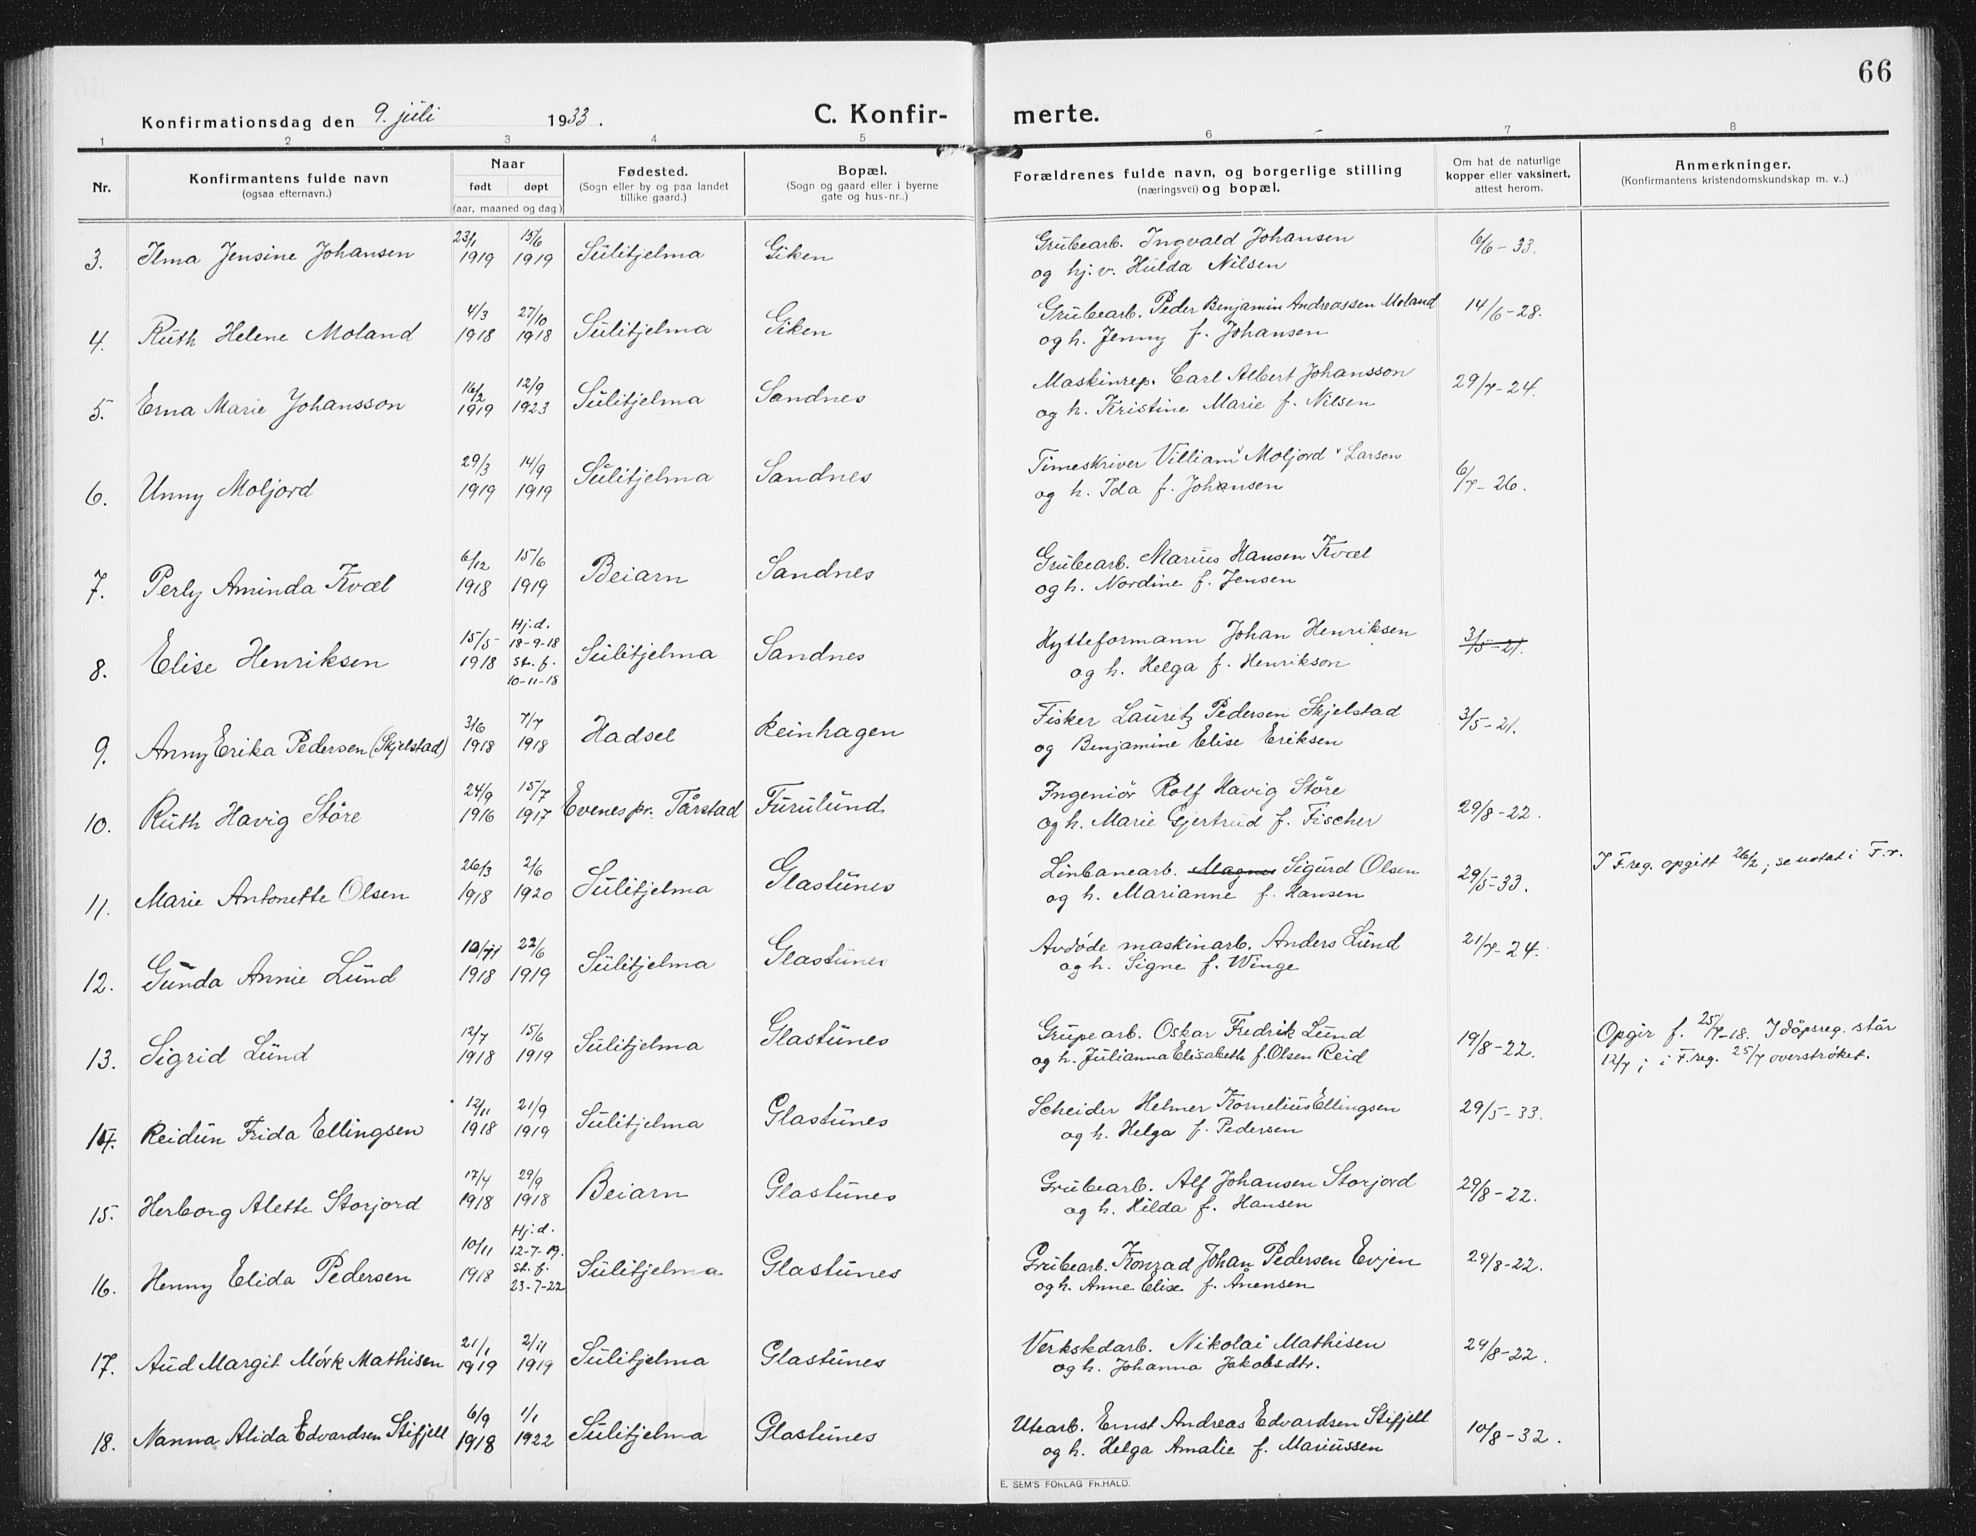 66
Konfirmationsdag den 9. juli 1933.
C. Konfirmerte.
1 2 3 4 5 6 7 8
Nr.
Konfirmantens fulde navn
(ogsaa efternavn.)
Naar
født døpt
(aar, maaned og dag.)
Fødested.
(Sogn eller by og paa landet
tillike gaard.)
Bopæl.
(Sogn og gaard eller i byerne
gate og hus-nr..)
Forældrenes fulde navn, og borgerlige stilling
(næringsvei) og bopæl.
Om hat de naturlige
kopper eller vaksinert,
attest herom.
Anmerkninger.
(Konfirmantens kristendomskundskap m. v..)
23/1 15/6 Grubearb. Ingvald Johansen 6/6-33.
3. Ilma Jensine Johansen 1919 1919 Sulitjelma Giken og hj.v. Hulda Nilsen
4/3 27/10 Grubearb. Peder Benjamin Andreassen Moland 14/6-28.
4. Ruth Helene Moland 1918 1918 Sulitjelma Giken og h. Jenny f. Johansen
16/2 12/9 Maskinrep. Carl Albert Johansson 29/7-24.
5. Erna Marie Johansson 1919 1923 Sulitjelma Sandnes og h. Kristine Marie f. Nilsen
29/3 14/9 Timeskriver Villiam Moljord Larsen
6. Unny Moljord 1919 1919 Sulitjelma Sandnes og h. Ida f. Johansen 6/7-26.
6/12 15/6 Grubearb. Marius Hansen Kvæl
7. Perly Aminda Kvæl 1918 1919 Beiarn Sandnes og h. Nordine f. Jensen
15/5 Hj.d. 18-9-18 Hytteformann Johan Henriksen 3/5-21.
8. Elise Henriksen 1918 st. f. 10-11-18 Sulitjelma Sandnes og h. Helga f. Henrikson
3/6 7/7 Fisker Lauritz Pedersen Skjelstad 3/5-21.
9. Anny Erika Pedersen (Skjelstad) 1918 1918 Hadsel Reinhagen og Benjamine Elise Eriksen
24/9 15/7 Ingeniör Rolf Havig Störe
10. Ruth Havig Störe 1916 1917 Evenes pr. Tårstad Furulund og h. Marie Gjertrud f. Fischer 29/8-22.
26/3 2/6 Linbanearb. Magnus Sigurd Olsen 29/5-33. I F.reg. opgitt 26/2; se notat i F.r.
11. Marie Antonette Olsen 1918 1920 Sulitjelma Glastunes og h. Marianne f. Hansen
10/11 22/6 Avdöde maskinarb. Anders Lund 21/7-24.
12. Gunda Annie Lund 1918 1919 Sulitjelma Glastunes og h. Signe f. Winge
12/7 15/6 Grupearb. Oskar Fredrik Lund 19/8-22. Opgir f. 25/7-18. I döpsreg. står
13. Sigrid Lund 1918 1919 Sulitjelma Glastunes og h. Julianna Elisabeth f. Olsen Reid 12/7; i F.reg. 25/7 overstrøket.
12/11 21/9 Scheider Helmer Kornelius Ellingsen 29/5-33.
14. Reidun Frida Ellingsen 1918 1919 Sulitjelma Glastunes og h. Helga f. Pedersen
17/4 29/9 Grubearb. Alf Johansen Storjord 29/8-22.
15. Herborg Alette Storjord 1918 1918 Beiarn Glastunes og h. Hilda f. Hansen
10/11 Hj.d. 12-7-19. Grubearb. Konrad Johan Pedersen Evjen 29/8-22.
16. Henny Elida Pedersen 1918 st. f. 23-7-22 Sulitjelma Glastunes og h. Anne Elise f. Anensen
21/1 2/11 Verkskdarb. Nikolai Mathisen 29/8-22.
17. Aud Margit Mörk Mathisen 1919 1919 Sulitjelma Glastunes og h. Johanna Jakobsdtr.
6/9 1/1 Utearb. Ernst Andreas Edvardsen Stifjell 10/8-32.
18. Nanna Alida Edvardsen Stifjell 1918 1922 Sulitjelma Glastunes og h. Helga Amalie f. Mariussen
E. SEM'S FORLAG FR.HALD.